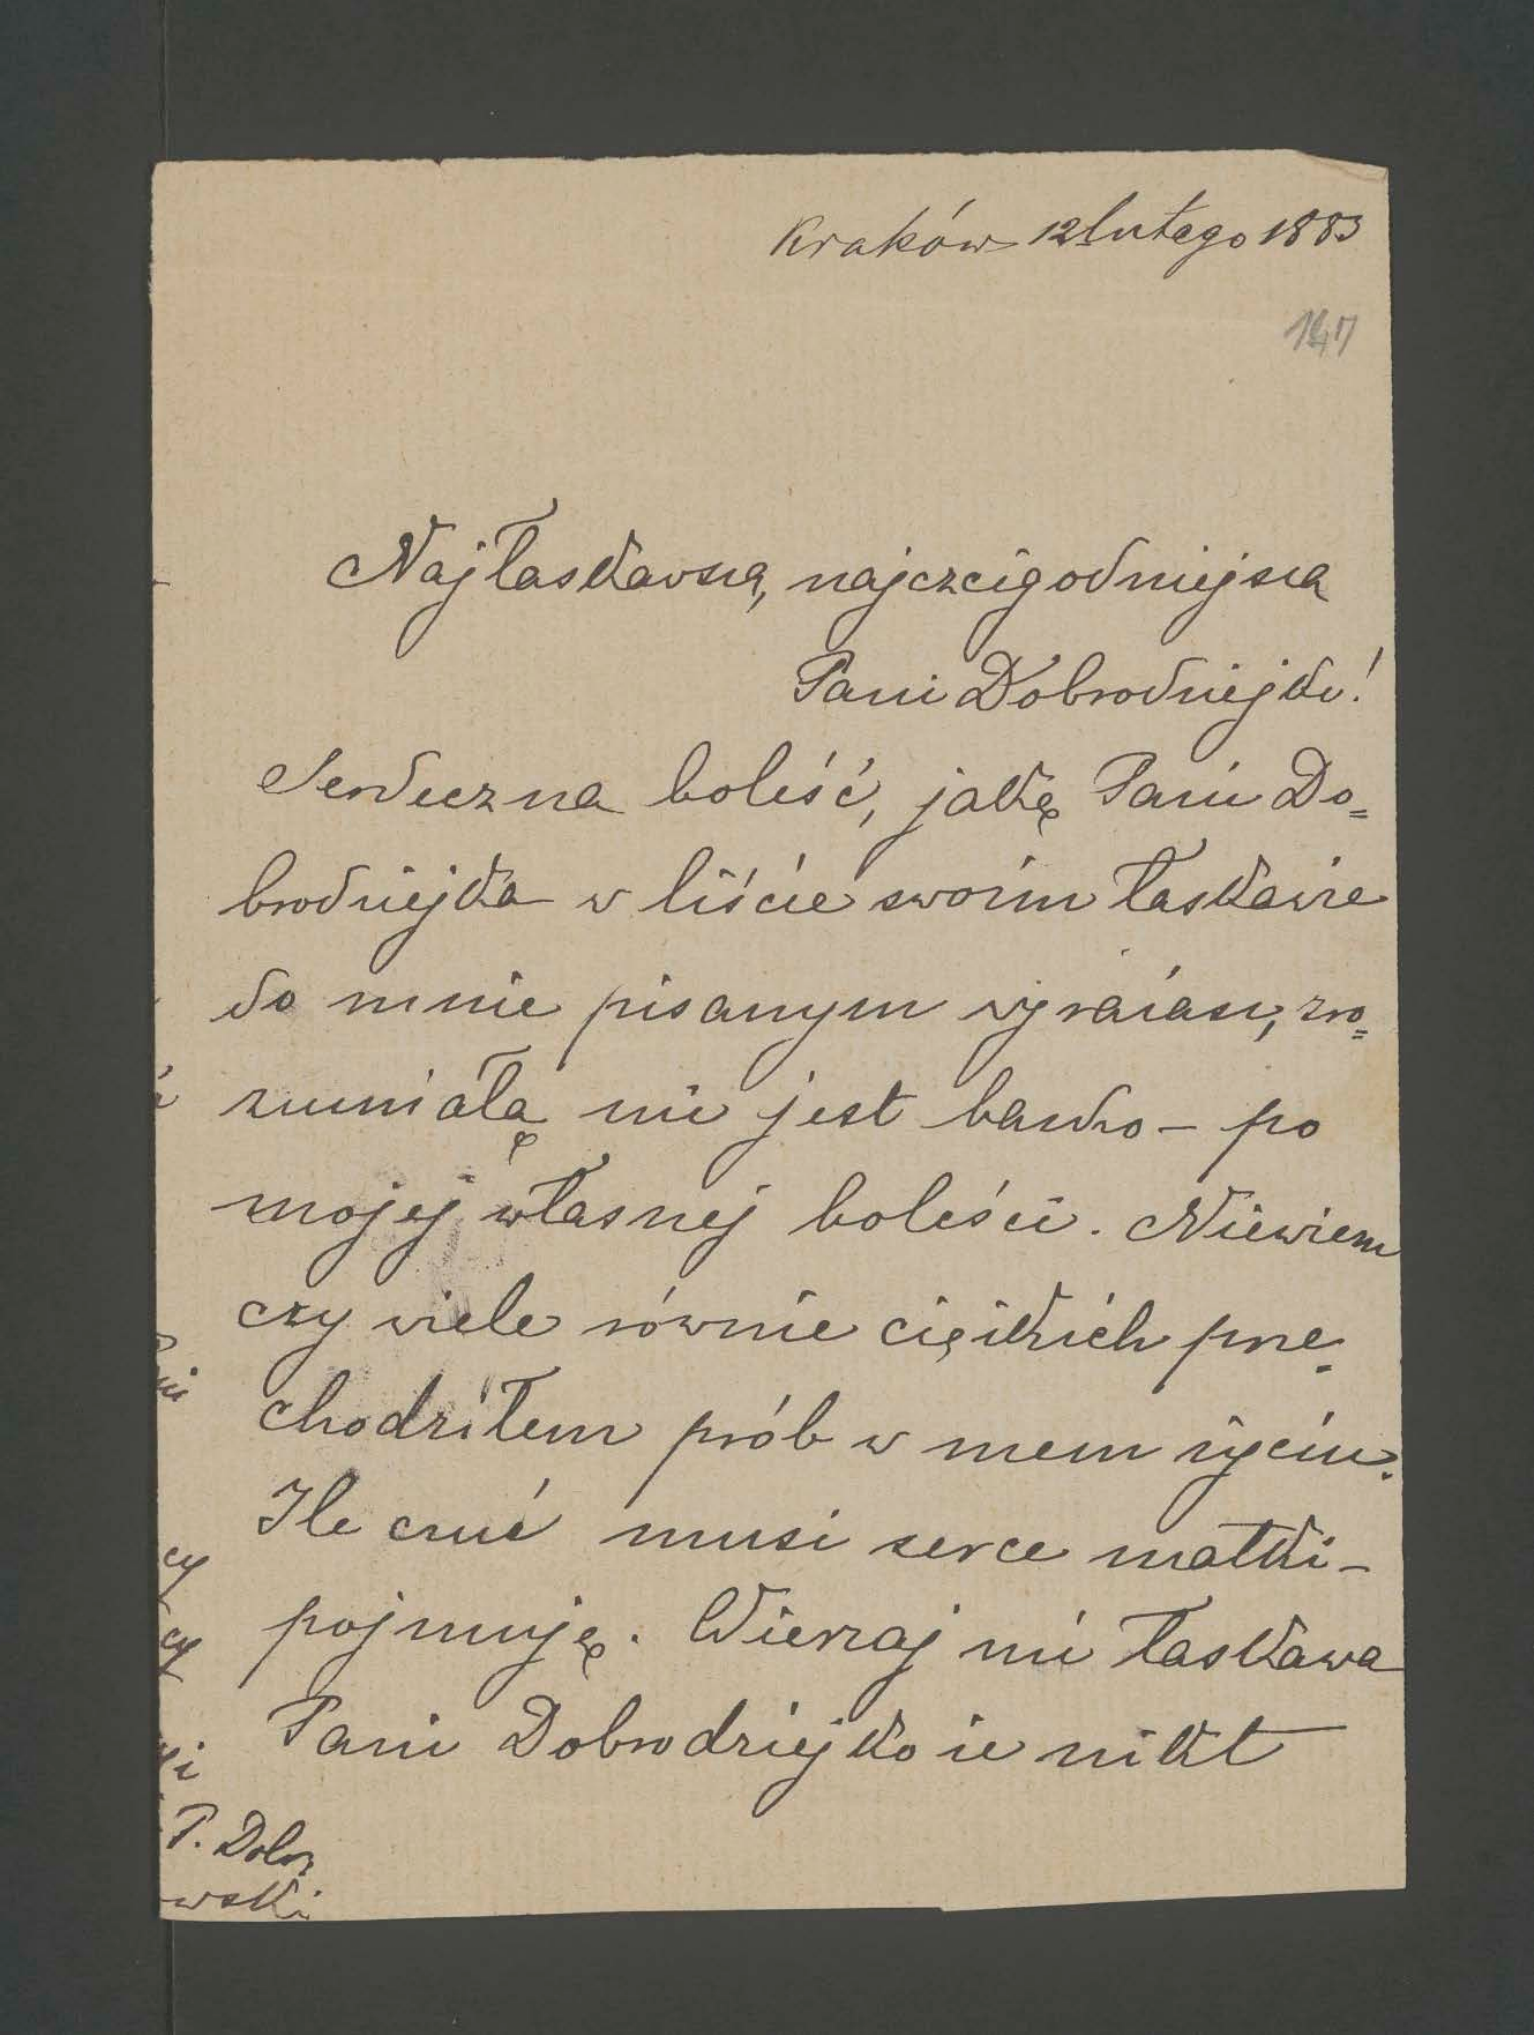 Kraków 12 lutego 1883
147
Najłaskawsza, najczcigodniejsza
Pani Dobrodziejko!
Serdeczna boleść, jaką Pani Do=
brodziejka w liście swoim łaskawie
do mnie pisanym wyrażasz, zro=
zumiałą mi jest bardzo – po
mojej własnej boleści. Niewiem
czy wiele równie ciężkich prze=
chodziłem prób w mem życiu.
Ile czuć musi serce matki –
pojmuję. Wierzaj mi łaskawa
Pani Dobrodziejko że nikt
cy
cy
P. Dobr
wski